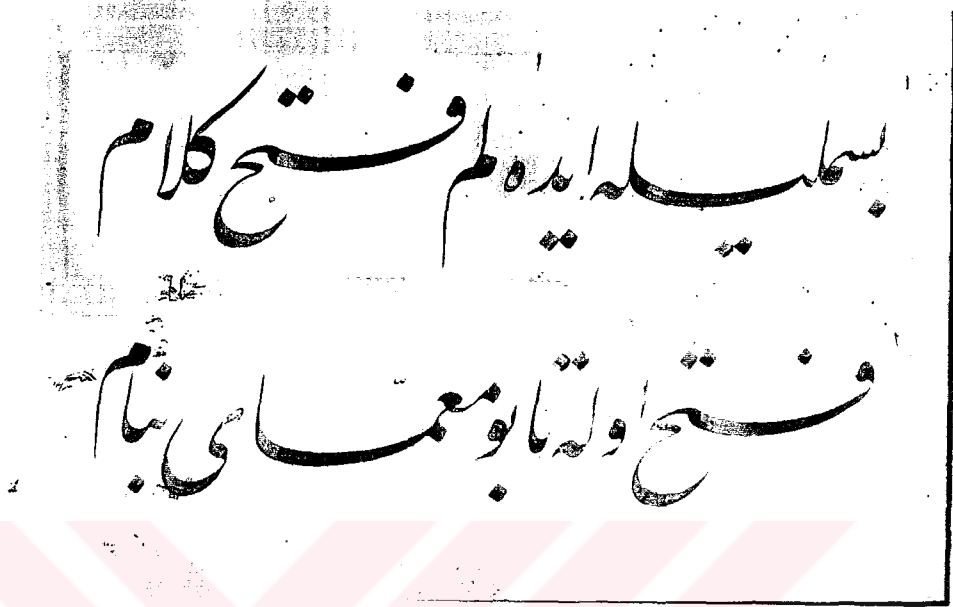 بسملیله ایده لم فتح کلام
فتح اوله تا بو معمّای بنام